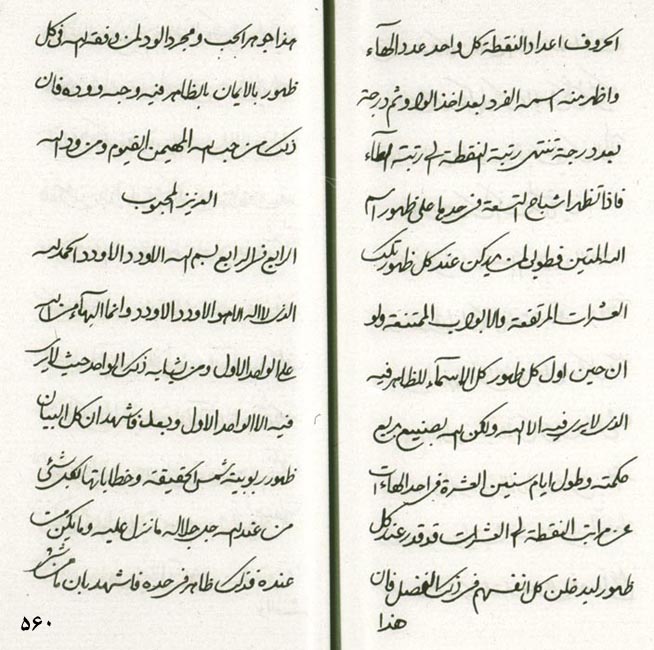 الحروف اعداد النقطة كل واحد عدد الهاء
واظهر منه اسمه الفرد بعد اخذ الواو ثم درجة
بعد درجة تنتهى رتبة النقطة الى رتبة الهاء
فاذا تظهر اشباح التسعة فى حدها على ظهور اسم
الله المتين فطوبى لمن يدركن عند كل ظهور تلك
العشرات المرتفعة والابواب الممتنعة ولو
ان حين اول كل ظهور كل الاسماء للظاهر فيه
الذى لا يرى فيه الا الله ولكن الله بصنيع بديع
حكمته وطول ايام سنين العشرة فى احد الهاءات
عن مراتب النقطة الى العشرات قد قدر عند كل
ظهور ليدخلن كل انفسهم فى ذلك الفضل فان
هذا
هذا جوهر الحب ومجرد الود لمن وفقه الله فى كل
ظهور بالايمان بالظاهر فيه وحبه ووده فان
ذلك من حب الله المهيمن القيوم ومن ود الله
العزيز المحبوب
الرابع فى الرابع بسم الله الاودد الاودد الحمد لله
الذى لا اله الا هو الاودد الاودد وانما البهاء من الله
على الواحد الاول ومن يشابه ذلك الواحد حيث لا يرى
فيه الا الواحد الاول وبعد فاشهد ان كل البيان
ظهور ربوبية شمس الحقيقة وخطاباتها لكل شئ
من عند الله جل جلاله ما نزل عليه وما يكن من
عنده فذلك ظاهر فى حده فاشهد بان ما من شئ
۵۶۰